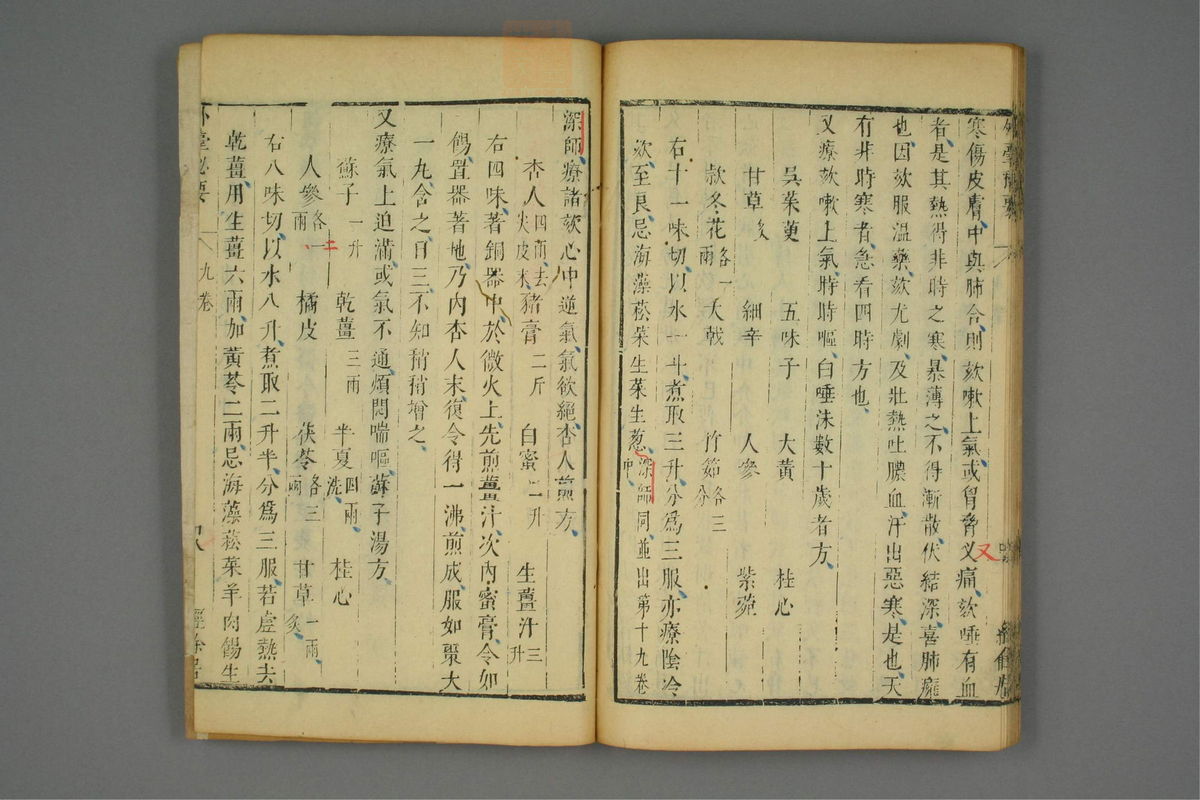 外臺秘要
寒傷皮膚中與肺合則欬嗽上氣或胷脅义痛欬唾有血
者是其熱得非時之寒暴薄之不得漸散伏結深喜肺癰
也因欬服溫藥欬尤劇及壯熱吐膿血汗出惡寒是也天
有非時寒者急看四時方也
又療欬嗽上氣時時嘔白唾沫數十歲者方
吳茱萸 五味子 大黃 桂心
甘草炙 細辛 人參 紫菀
欵冬花各一兩 大戟 竹筎各三分
右十一味切以水一斗煮取三升分爲三服亦療陰冷
欬至良忌海藻菘菜生菜生葱深師同並出第十九卷中
深師療諸欬心中逆氣氣欲絕杏人煎方
杏人四兩去尖皮末 豬膏二斤 白蜜二升 生薑汁三升
右四味著銅器中於微火上先煎薑汁次內蜜膏令如
餳置器著地乃內杏人末復令得一沸煎成服如棗大
一丸含之日三不知稍稍增之
又療氣上迫滿或氣不通煩悶喘嘔蘇子湯方
蘇子一升 乾薑三兩 半夏四兩洗 桂心
人參各一兩 橘皮 茯苓各三兩 甘草一兩炙
右八味切以水八升煮取二升半分爲三服若虛熱去
乾薑用生薑六兩加黃芩二兩忌海藻菘菜羊肉餳生
外臺秘要 九卷 經餘居